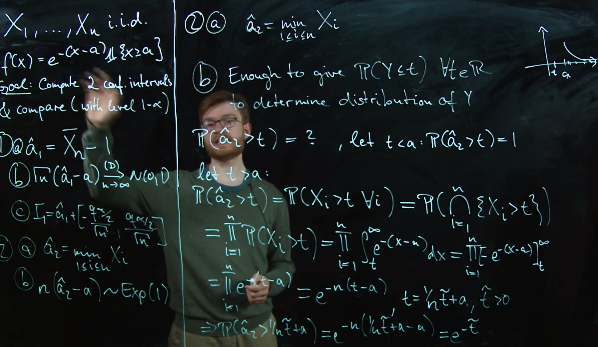 X₁,...,Xₙ i.i.d.
f(x) = e^{-(x-a)} 𝟙{x≥a}
Goal: Compute 2 conf. intervals
& compare (with level 1-α)
① ⓐ â₁ = X̄ₙ - 1
ⓑ √n (â₁-a) →^{(D)}_{n→∞} N(0,1)
ⓒ I₁ = â₁ + [q_{α/2}/√n, q_{1-α/2}/√n]
② ⓐ â₂ = min_{1≤i≤n} Xᵢ
ⓑ n(â₂-a) ~ Exp(1)
② ⓐ â₂ = min_{1≤i≤n} Xᵢ
ⓑ Enough to give ℙ(Y≤t) ∀t∈ℝ
to determine distribution of Y
ℙ(â₂>t) = ? , let t<a: ℙ(â₂>t) = 1
let t>a:
ℙ(â₂>t) = ℙ(Xᵢ>t ∀i) = ℙ(⋂_{i=1}^n {Xᵢ>t})
= ∏_{i=1}^n ℙ(Xᵢ>t) = ∏_{i=1}^n ∫_t^∞ e^{-(x-a)} dx = ∏_{i=1}^n [-e^{-(x-a)}]_t^∞
= ∏_{i=1}^n e^{-(t-a)} = e^{-n(t-a)} t = 1/n t̃ + a, t̃ > 0
⇒ ℙ(â₂ > 1/n t̃ + a) = e^{-n(1/n t̃ + a - a)} = e^{-t̃}